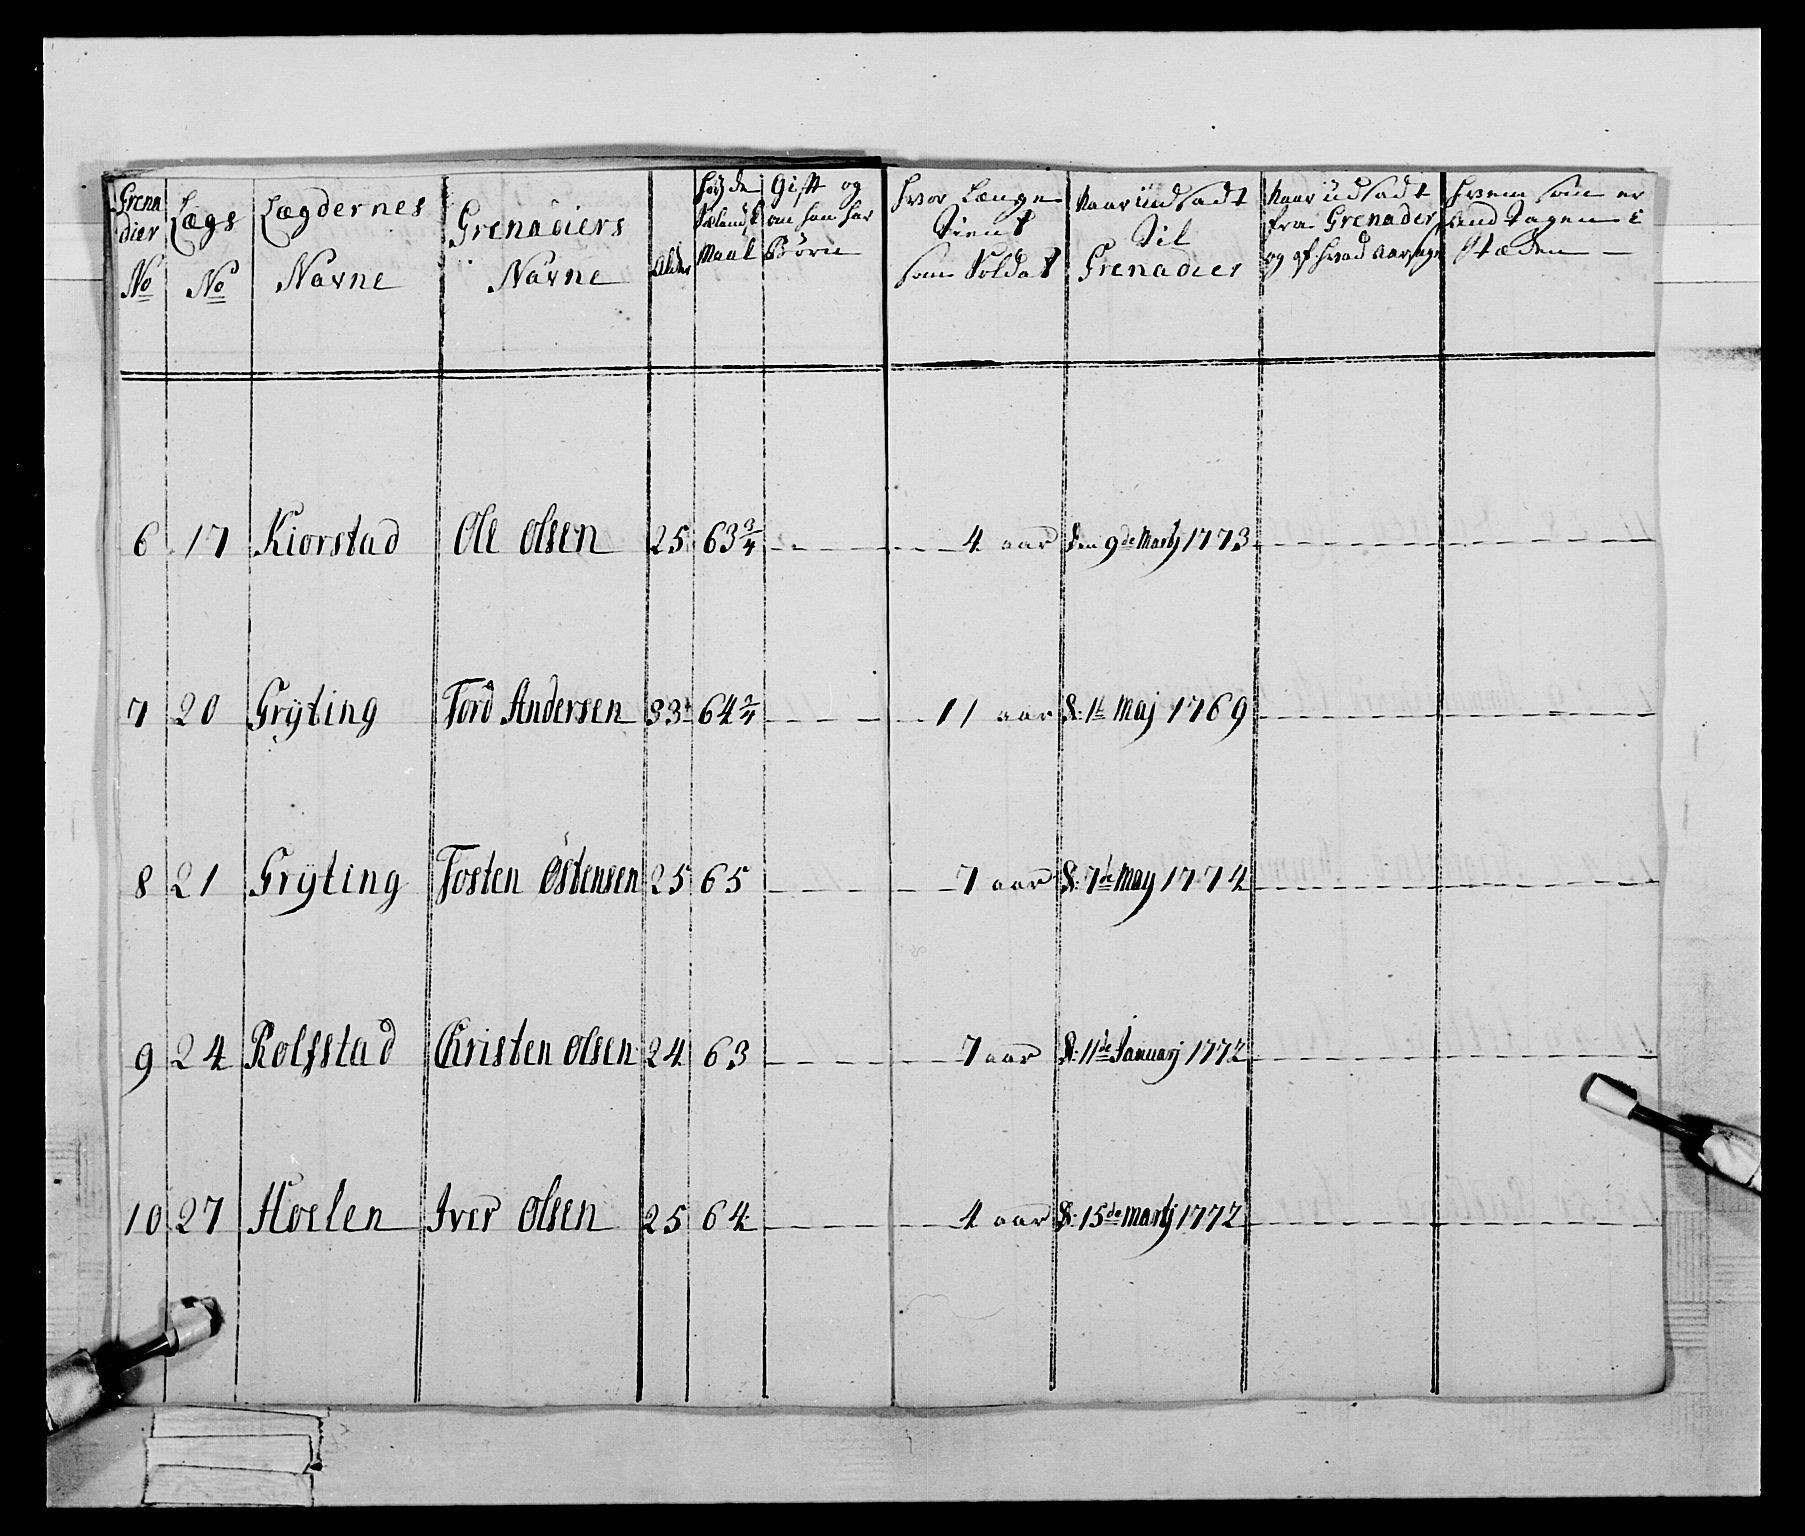 Grena
dier
No
Lægs
No
Lægdernes
Navne
Grenadiers
Navne
Alder
Høyde
Maal
Gift og
om han har
Børn
Hvor Længe
Tient
som Soldat
Naar Udsadt
Til
Grenadier
Naar Udsadt
fra Grenader
og af hvad Aarsage
Hvem som er
and Tagen i
Stæden
6 17 Kiorstad Ole Olsen 25 63 3/4 4 aar den 9de Martj 1773
7 20 Grÿting Tord Andersen 33 64 3/4 11 aar d: 1t Maj 1769
8 21 Grÿting Tosten Østensen 25 65 7 aar d: 7de May 1774
9 24 Rolfstad Christen Olsen 24 63 7 aar d: 11de Januarj 1772
10 27 Hoelen Iver Olsen 25 64 4 aar d: 15de Martj 1772